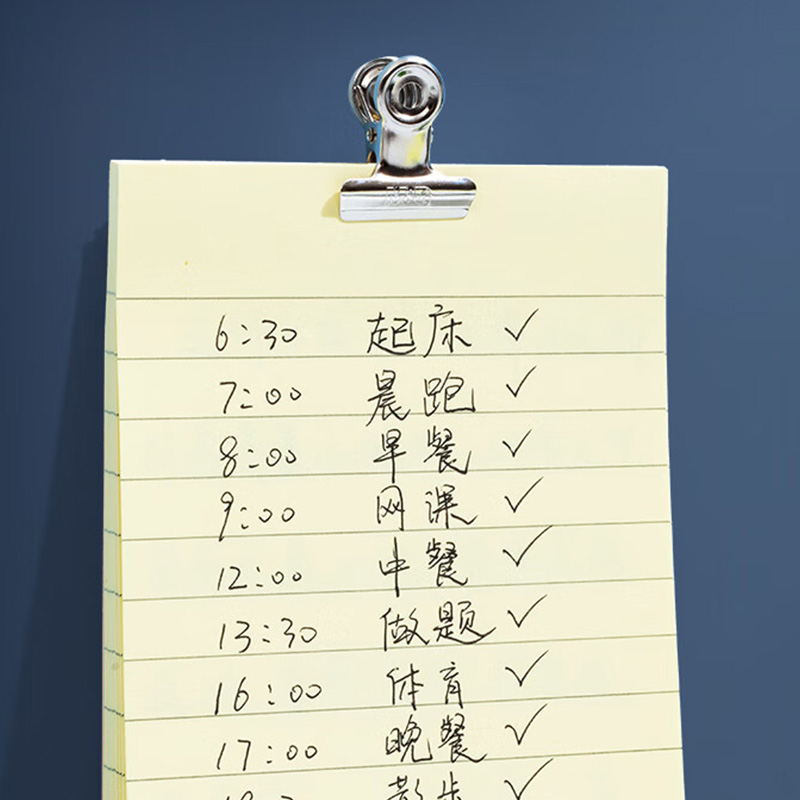 6:30 起床 ✓
7:00 晨跑 ✓
8:00 早餐 ✓
9:00 网课 ✓
12:00 中餐 ✓
13:30 做题 ✓
16:00 体育 ✓
17:00 晚餐 ✓
散步 ✓